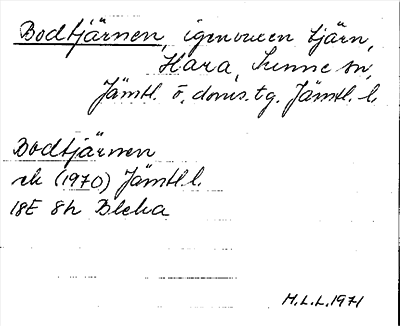 Bodtjärnen, igenvuxen tjärn,
Hara, Sunne sn,
Jämtl. ö. doms.tg. Jämtl. l.
Bodtjärnen
ek (1970) Jämtl. l.
18E 8h Bleka
H.L.L. 1971